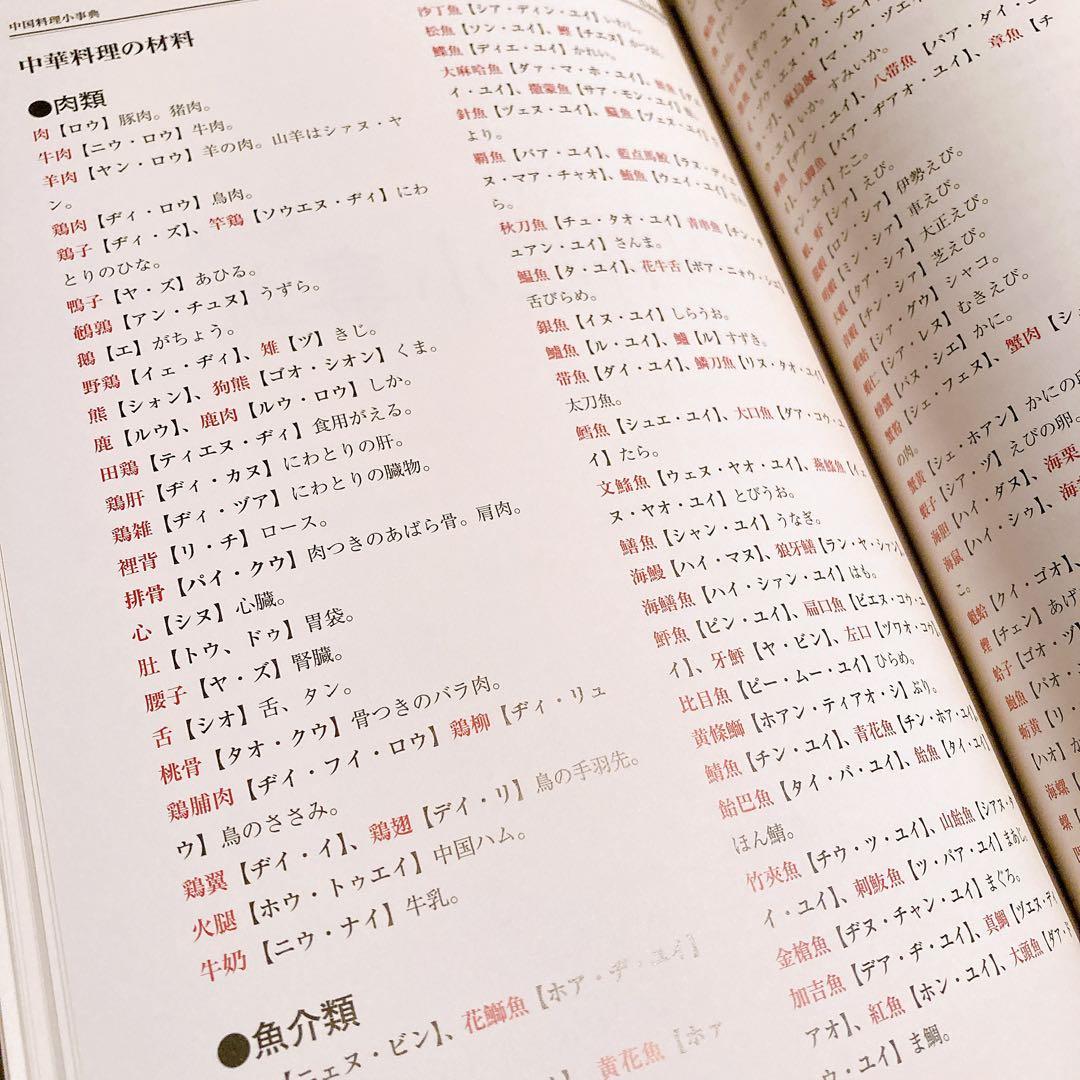 中国料理小事典
中華料理の材料
●肉類
肉【ロウ】豚肉。猪肉。
牛肉【ニウ・ロウ】牛肉。
羊肉【ヤン・ロウ】羊の肉。山羊はシァヌ・ヤ
ン。
鶏肉【ヂィ・ロウ】鳥肉。
鶏子【ヂィ・ズ】、竿鶏【ソウエヌ・ヂィ】にわ
とりのひな。
鴨子【ヤ・ズ】あひる。
鵪鶉【アン・チュヌ】うずら。
鵝【エ】がちょう。
野鶏【イェ・ヂィ】、雉【ヅ】きじ。
熊【シォン】、狗熊【ゴオ・シオン】くま。
鹿【ルウ】、鹿肉【ルウ・ロウ】しか。
田鶏【ティエヌ・ヂィ】食用がえる。
鶏肝【ヂィ・カヌ】にわとりの肝。
鶏雑【ヂィ・ヅア】にわとりの臓物。
裡背【リ・チ】ロース。
排骨【パイ・クウ】肉つきのあばら骨。肩肉。
心【シヌ】心臓。
肚【トウ、ドゥ】胃袋。
腰子【ヤ・ズ】腎臓。
舌【シオ】舌、タン。
桃骨【タオ・クウ】骨つきのバラ肉。
鶏脯肉【ヂィ・フイ・ロウ】鶏柳【ヂィ・リュ
ウ】鳥のささみ。
鶏翼【ヂイ・イ】、鶏翅【デイ・リ】鳥の手羽先。
火腿【ホウ・トゥエイ】中国ハム。
牛奶【ニウ・ナイ】牛乳。
●魚介類
【ニェヌ・ビン】、花鰤魚【ホア・ヂ・ユイ】
黄花魚【ホァ
沙丁魚【シア・ディン・ユイ】いわし。
松魚【ソン・ユイ】、鰹【チエヌ】かつお。
鰈魚【ディエ・ユイ】かれい。
大麻哈魚【ダァ・マ・ホ・ユイ】、
イ・ユイ】、撒蒙魚【サア・モン・ユイ】
針魚【ヅェヌ・ユイ】、
より。
覇魚【バア・ユイ】、藍点馬鮫【ラヌ・ティエ
ヌ・マア・チャオ】、鮪魚【ウェイ・ユイ】
ら。
秋刀魚【チュ・タオ・ユイ】青串魚【チン・
ュアン・ユイ】さんま。
鰨魚【タ・ユイ】、花牛舌【ボア・ニォウ・シェ】
舌びらめ。
銀魚【イヌ・ユイ】しらうお。
鱸魚【ル・ユイ】、鱸【ル】すずき。
帯魚【ダイ・ユイ】、鱗刀魚【リヌ・タオ・ユイ】
太刀魚。
鱈魚【シュエ・ユイ】、大口魚【ダア・コウ・ユ
イ】たら。
文鰩魚【ウェヌ・ヤオ・ユイ】、燕鰩魚【イェ
ヌ・ヤオ・ユイ】とびうお。
鱔魚【シャン・ユイ】うなぎ。
海鰻【ハイ・マヌ】、狼牙鱔【ラン・ヤ・シャン】
海鱔魚【ハイ・シァン・ユイ】はも。
鮃魚【ピン・ユイ】、扁口魚【ピエヌ・コウ・ユ
イ】、牙鮃【ヤ・ピン】、左口【ヅワオ・コウ】、
比目魚【ピー・ムー・ユイ】ひらめ。
黄條鰤【ホアン・ティアオ・シ】ぶり。
鯖魚【チン・ユイ】、青花魚【チン・ホア・ユイ】、
鮐巴魚【タイ・バ・ユイ】、鮐魚【タイ・ユイ】
ほん鯖。
竹夾魚【チウ・ツ・ユイ】、山鮐魚【シアス・タ
イ・ユイ】、刺鮁魚【ツ・パア・ユイ】まあじ。
金槍魚【ヂヌ・チャン・ユイ】まぐろ。
加吉魚【デア・ヂ・ユイ】、真鯛【ツエヌ・ディ
アオ】、紅魚【ホン・ユイ】、大頭魚【ダア・ド
ウ・ユイ】ま鯛。
八帯魚【バア・ダイ・ユ
イ】、八脚魚【バア・ヂアオ・ユイ】、章魚【チ
ャン・ユイ】たこ。
【シア】えび。
【ロン・シア】伊勢えび。
【ミン・シァ】車えび。
【タア・シア】大正えび。
【チン・シァ】芝えび。
【シア・グウ】シャコ。
蝦仁【シア・レヌ】むきえび。
【パヌ・シエ】かに。
蟹粉【シェ・フェヌ】、蟹肉【シ
の肉。
蟹黄【シェ・ホアン】かにの
蝦子【シア・ヅ】えびの卵。
海胆【ハイ・ダヌ】、海栗
海鼠【ハイ・シゥ】、海
こ。
魁蛤【クイ・ゴオ】、
蟶【チェン】あげ
蛤子【ゴオ・ヅ】
鮑魚【パオ・
蛎黄【リ・
【ハオ】か
海螺【
螺【